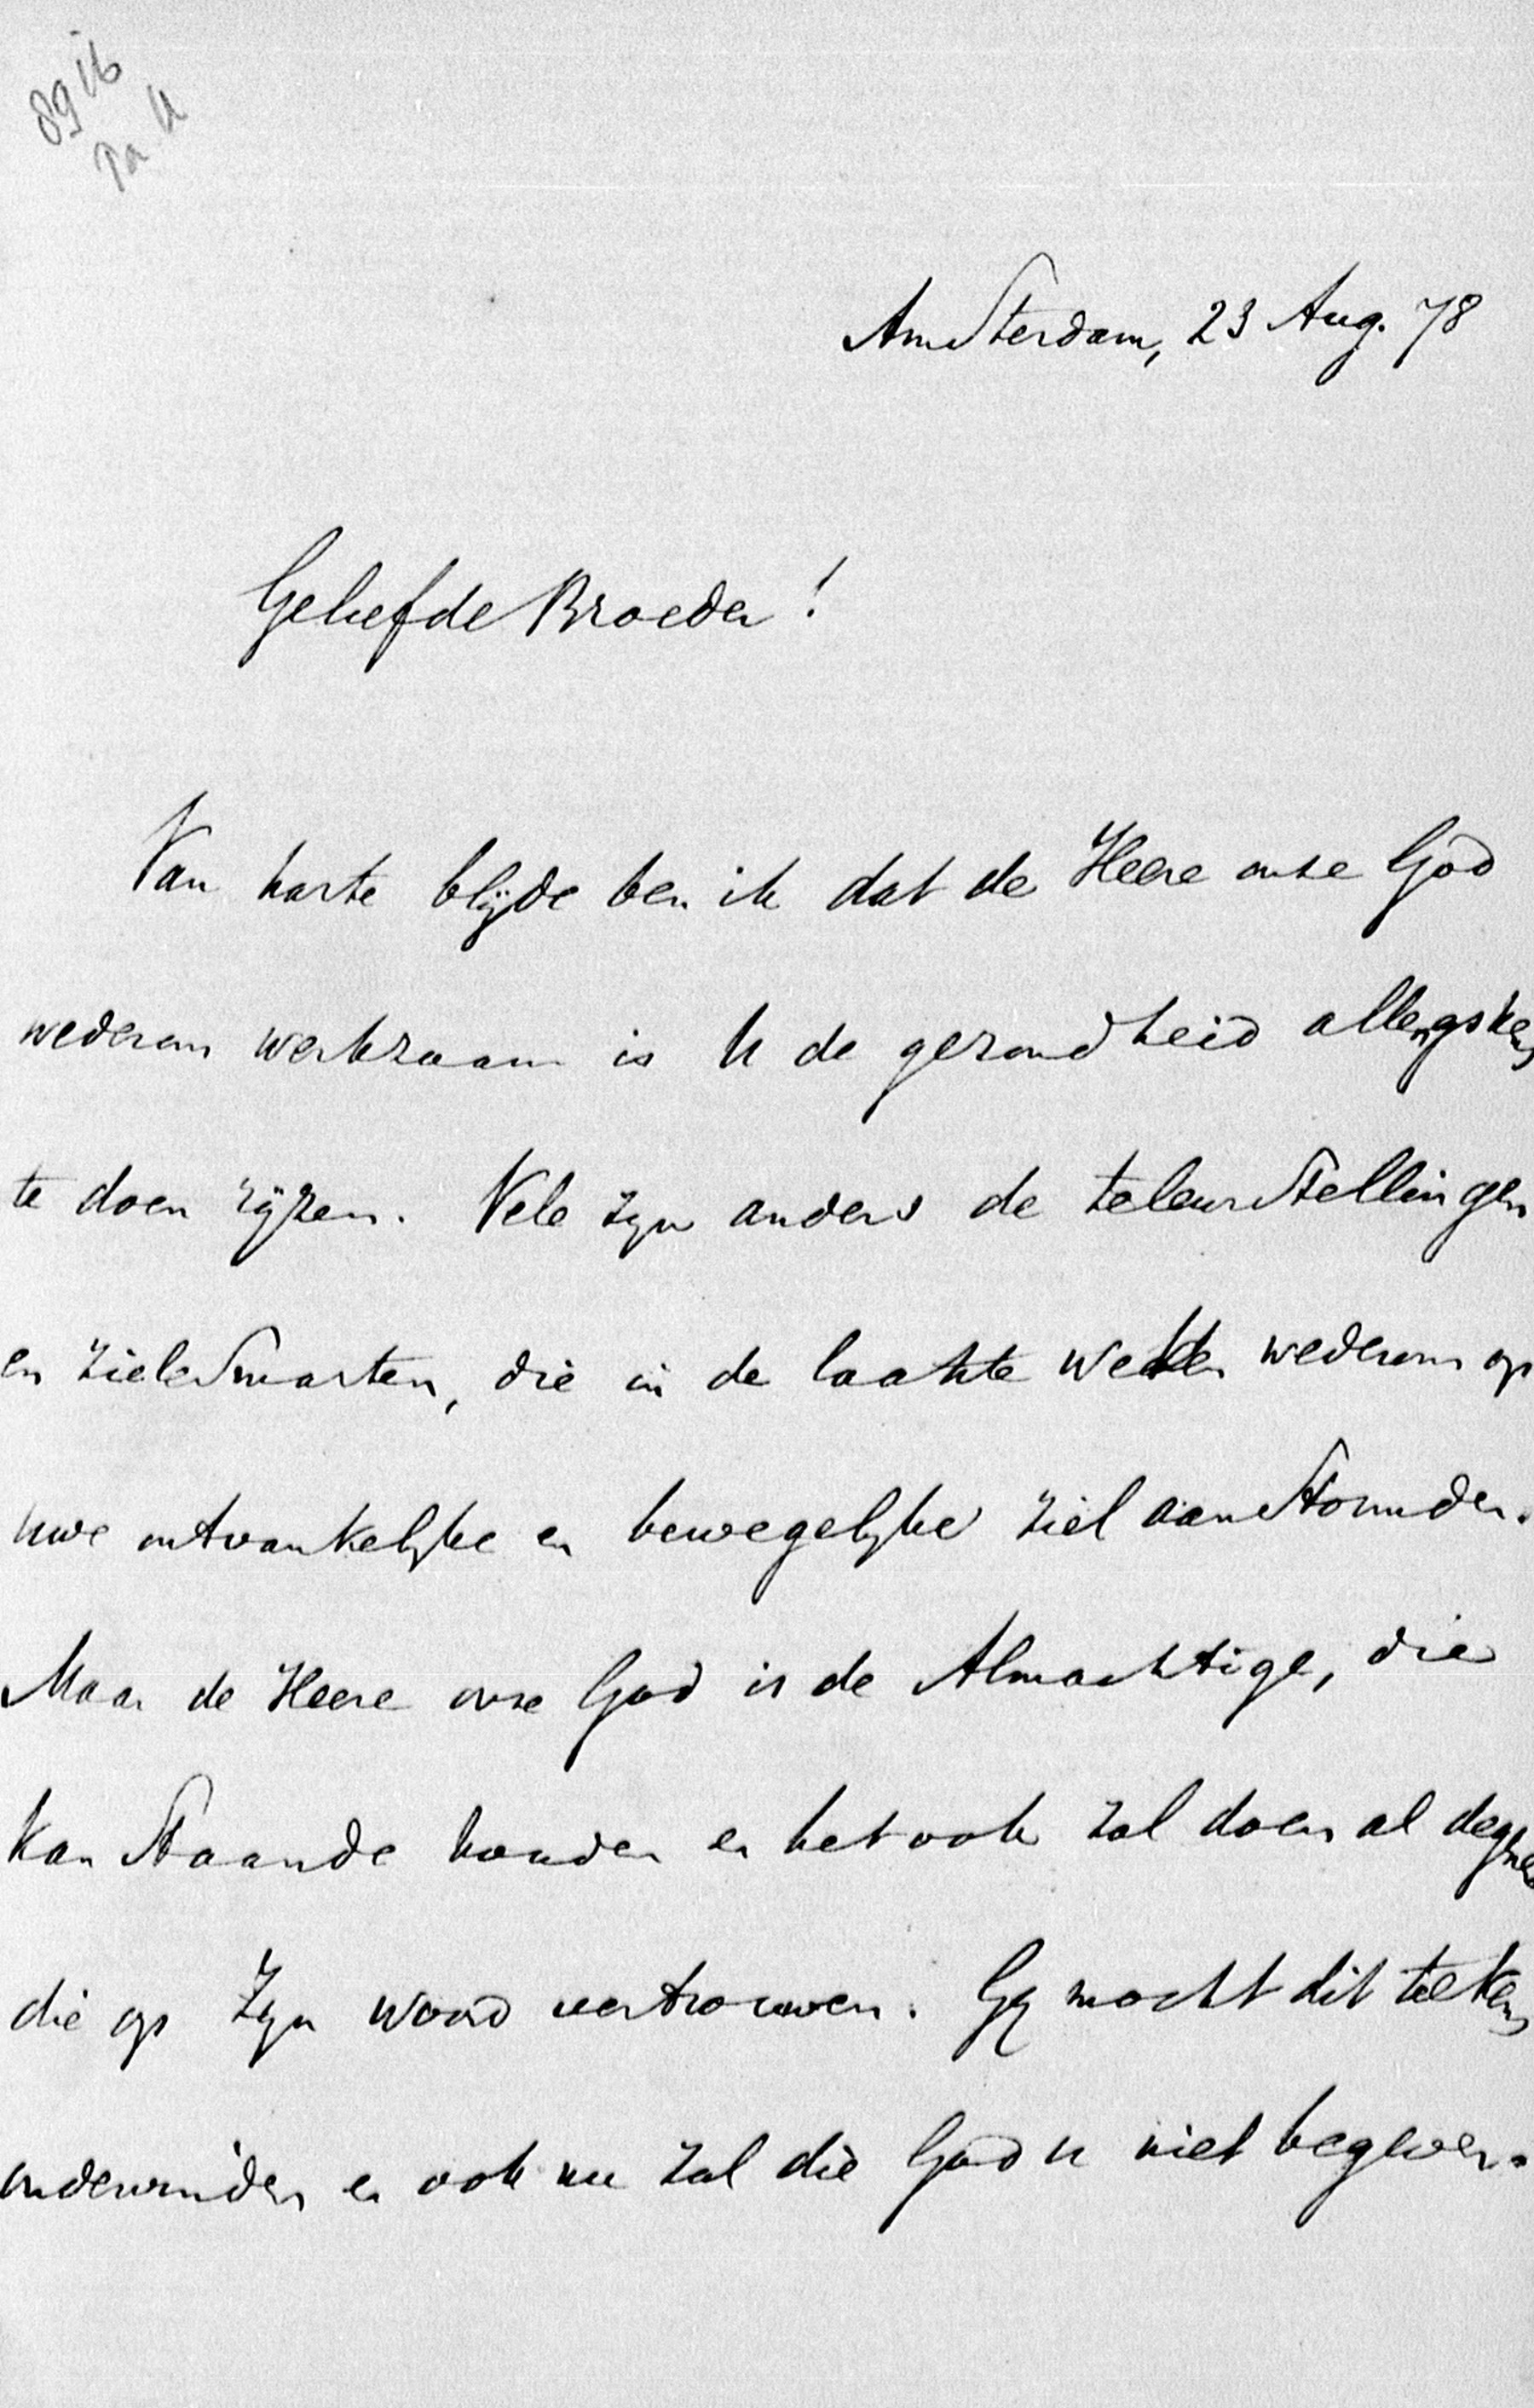 89ib
Pa U
Amsterdam, 23 Aug. 78
Geliefde Broeder!
Van harte blijde ben ik dat de Heere onze God
wederom werkzaam is U de gezondheid allengskens
te doen rijzen. Vele zijn anders de teleurstellingen
en zielesmarten, die in de laatste weken wederom op
uwe ontvankelijke en bewegelijke ziel aanstormden.
Maar de Heere onze God is de Almachtige, die
kan staande houden en het ook zal doen al degenen
die op Zijn woord vertrouwen. Gij mocht dit telkens
ondervinden en ook nu zal die God u niet begeven.